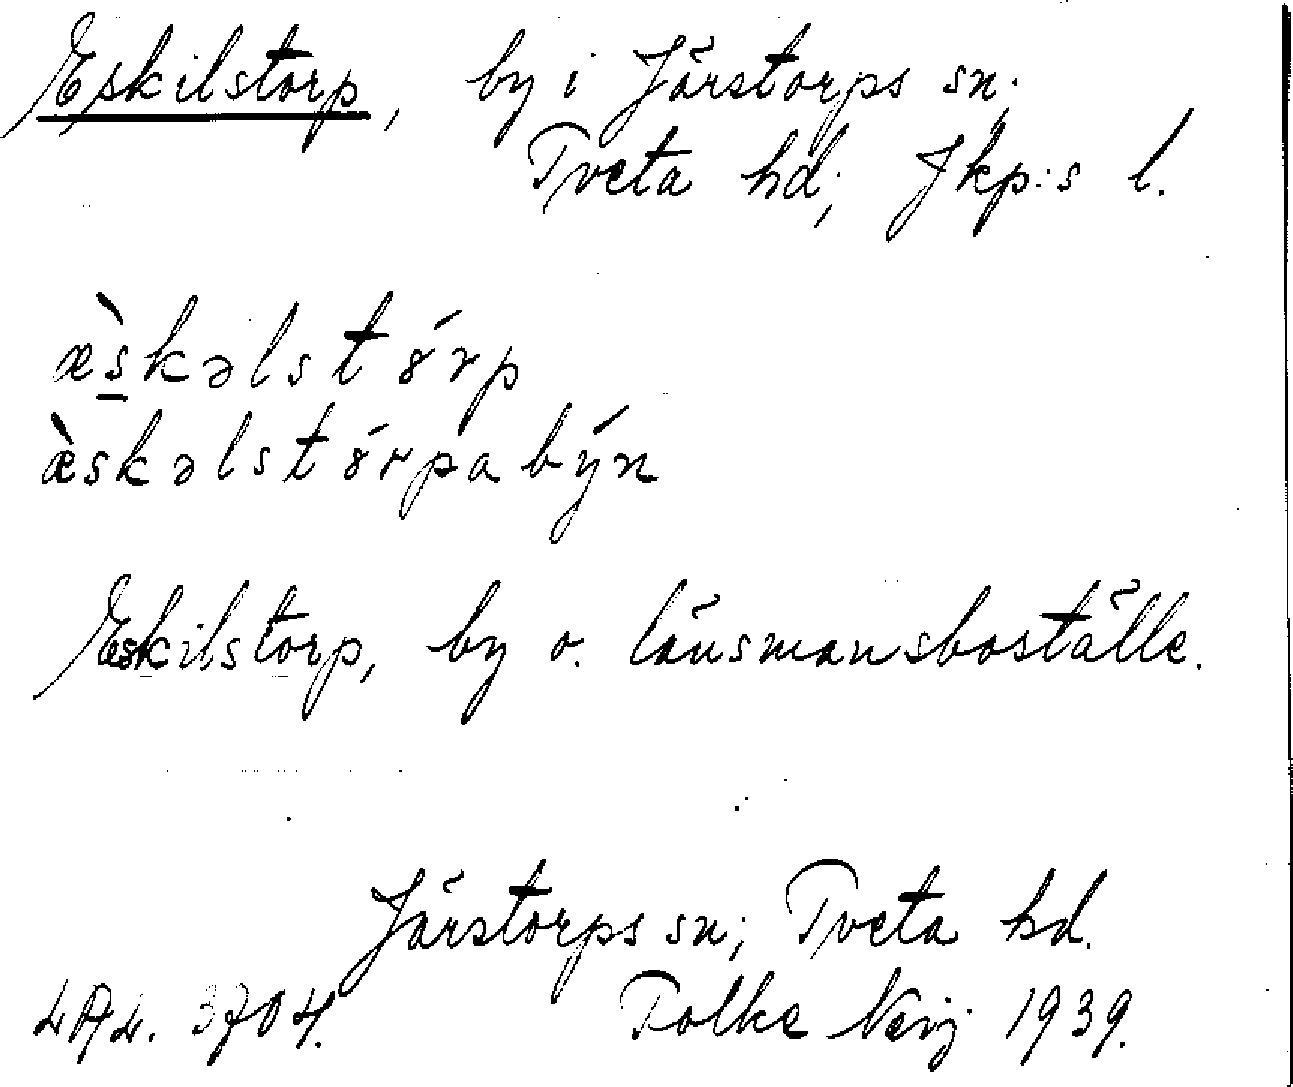 Eskilstorp, by i Järstorps sn;
Tveta hd; Jkp:s l.
æ̀skəlstórp
æ̀skəlstórpabýn
Eskilstorp, by o. länsmansboställe.
Järstorps sn; Tveta hd.
LAL. 3704. Folke 1939.